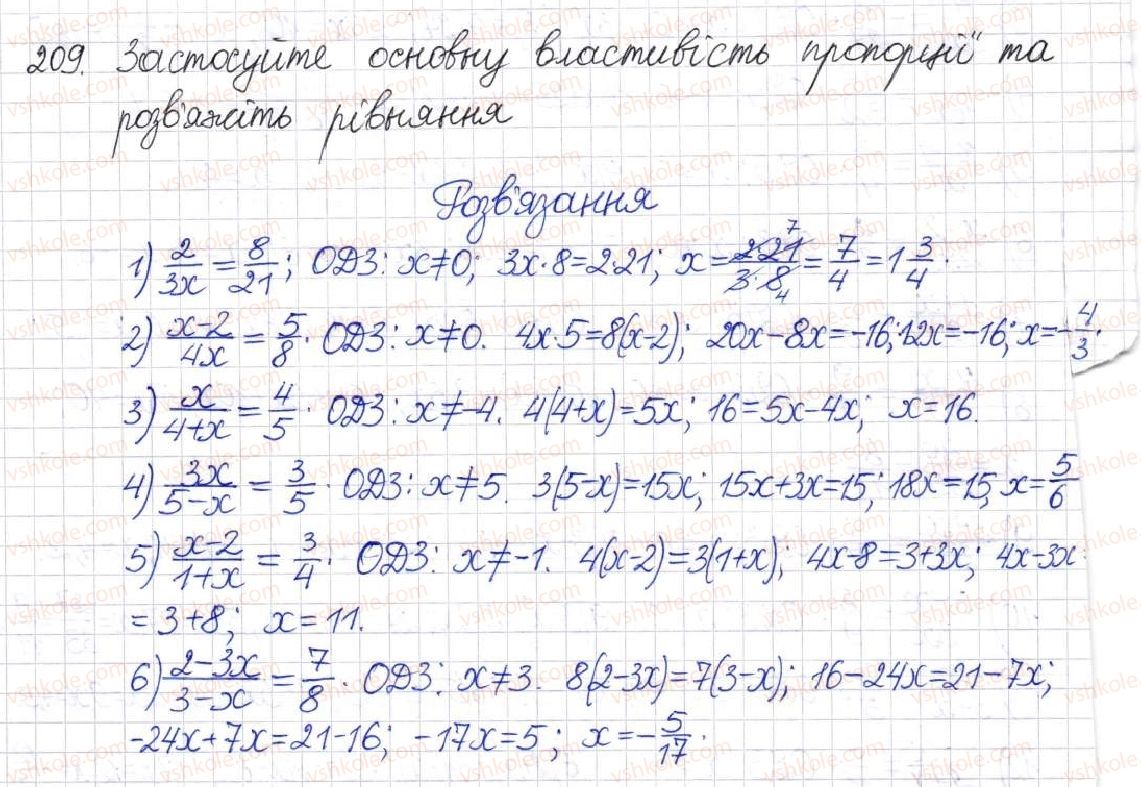 209. Застосуйте основну властивість пропорції та
розв'яжіть рівняння
Розв'язання
1) 2/3x = 8/21; ОДЗ: x≠0; 3x·8=2·21; x = 2·21/3·8 = 7/4 = 1 3/4.
2) x-2/4x = 5/8. ОДЗ: x≠0. 4x·5=8(x-2); 20x-8x=-16; 12x=-16; x=-4/3.
3) x/4+x = 4/5. ОДЗ: x≠-4. 4(4+x)=5x; 16=5x-4x; x=16.
4) 3x/5-x = 3/5. ОДЗ: x≠5. 3(5-x)=15x; 15x+3x=15; 18x=15; x=5/6
5) x-2/1+x = 3/4. ОДЗ: x≠-1. 4(x-2)=3(1+x); 4x-8=3+3x; 4x-3x=
=3+8; x=11.
6) 2-3x/3-x = 7/8. ОДЗ: x≠3. 8(2-3x)=7(3-x); 16-24x=21-7x;
-24x+7x=21-16; -17x=5; x=-5/17.
vshkole.com